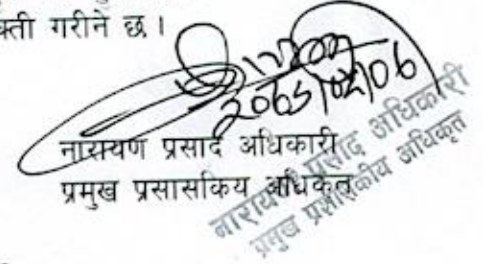 क्ती गरीने छ ।
नारायण प्रसाद अधिकारी
प्रमुख प्रसासकिय अधिकृत
नारायण प्रसाद अधिकारी
प्रमुख प्रशासकीय अधिकृत